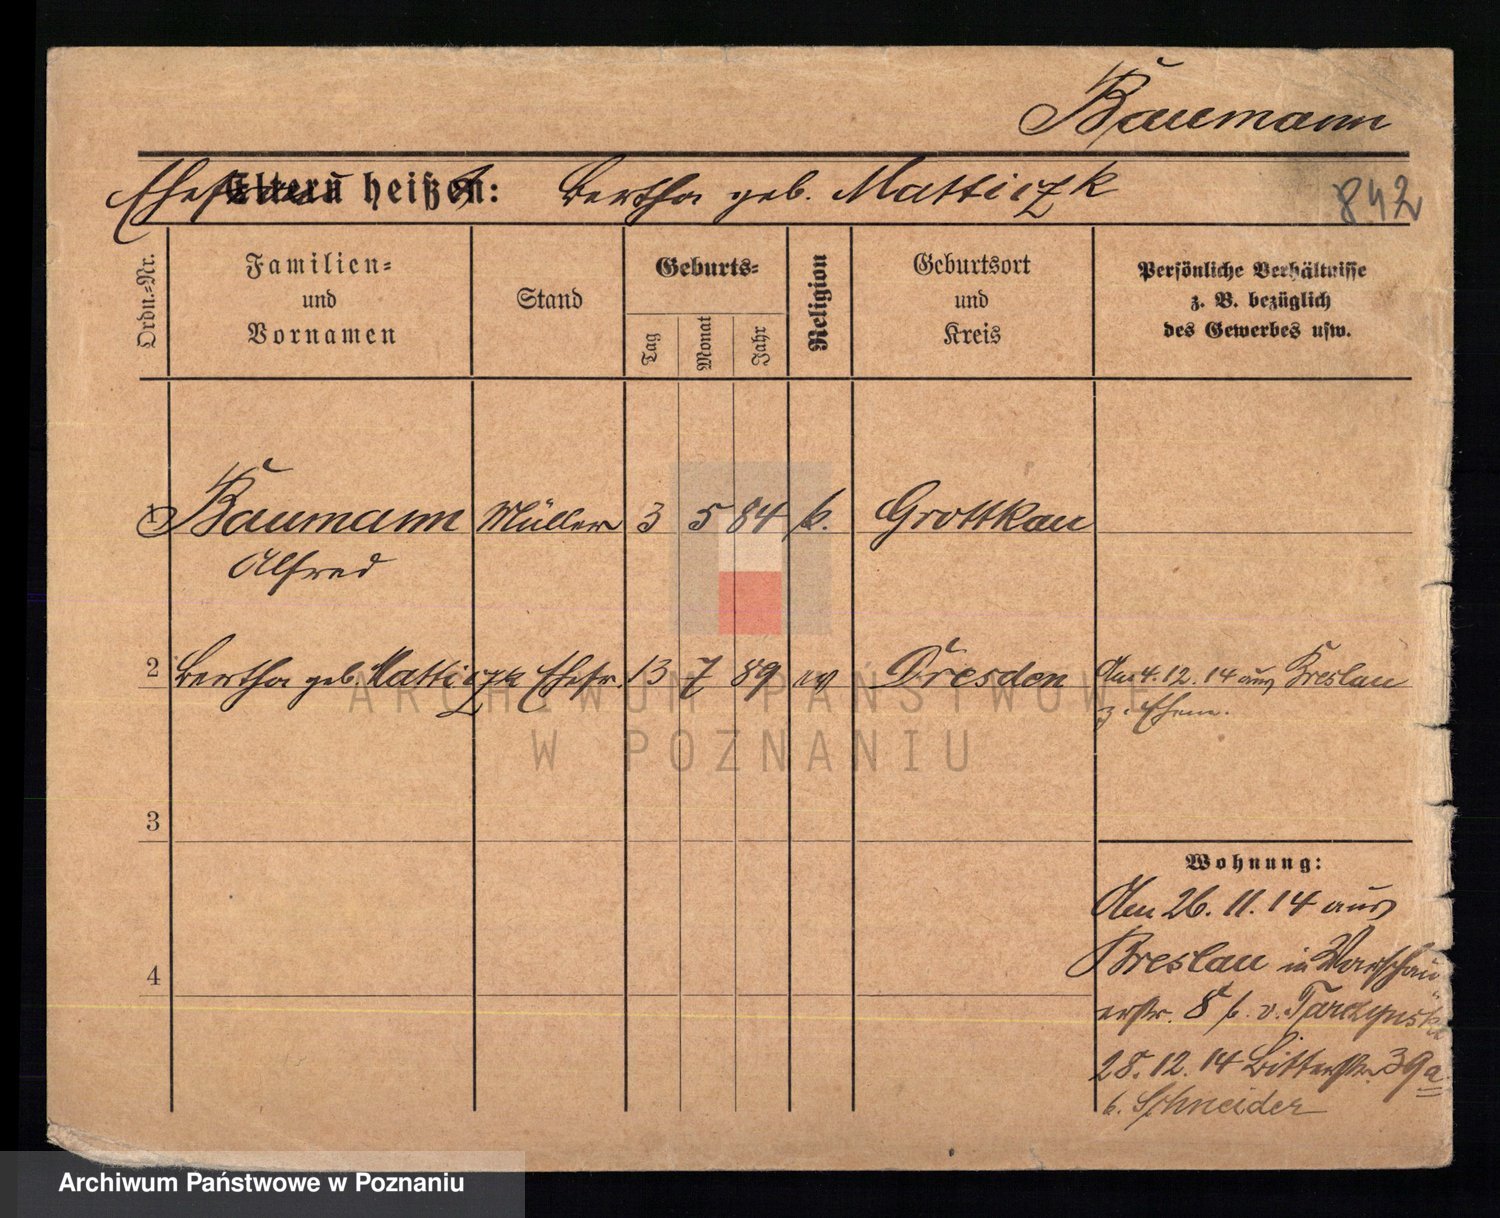 Baumann
Eltern heißen: Bertha geb. Matticzk
842
Ordn.-Nr.
Familien-
und
Vornamen
Stand
Geburts-
Tag
Monat
Jahr
Religion
Geburtsort
und
Kreis
Persönliche Verhältnisse
z. B. bezüglich
des Gewerbes usw.
1 Baumann Müller 3 5 84 k. Grottkau
Alfred
2 Bertha geb. Matticzk Ehefr. 13 7 89 ev Dresden Am 4.12.14 aus Breslau
z. Ehem.
3
4
Wohnung:
Am 26.11.14 aus
Breslau in Warschau
erstr. 8 b. v.
28.12.14 Bitterstr. 39a
b. Schneider
ARCHIWUM PAŃSTWOWE
W POZNANIU
Archiwum Państwowe w Poznaniu